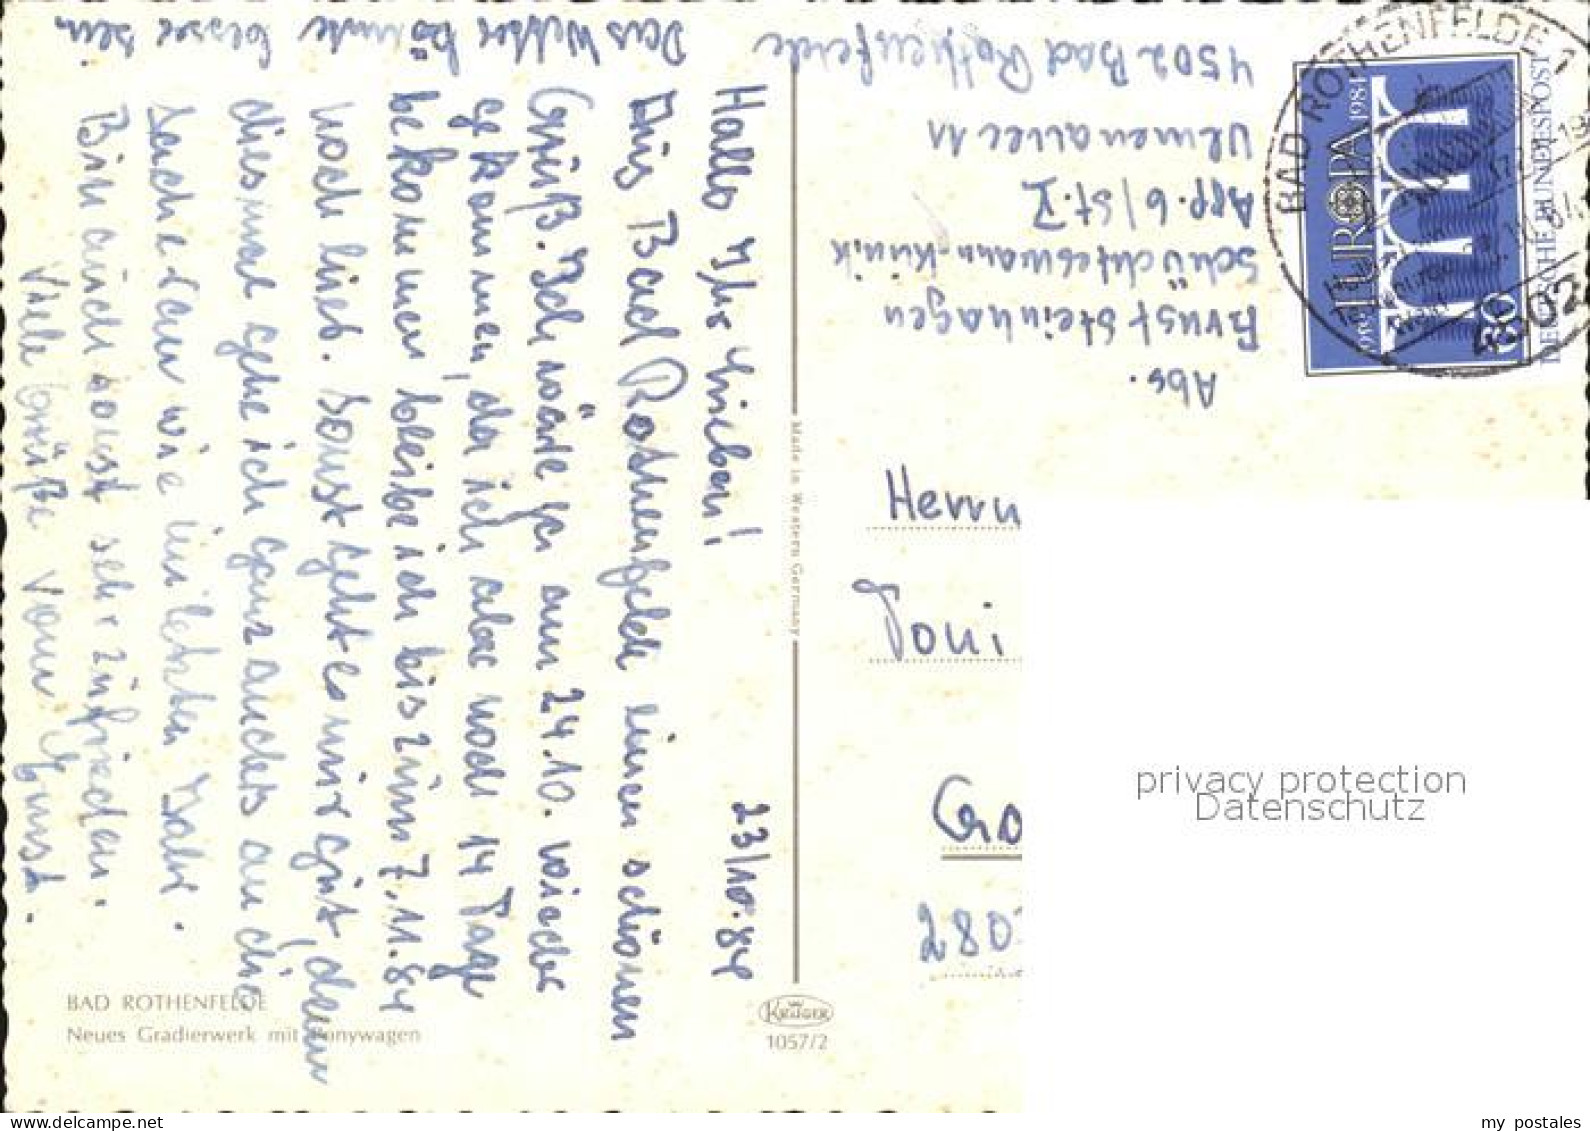 Hallo Ihr Lieben!
23/10.84
Aus Bad Rothenfelde einen schönen
Gruß. Ich wäre ja am 24.10. wieder
gekommen, da ich aber noch 14 Tage
bekommen bleibe ich bis zum 7.11.84
noch hier. Sonst geht es mir gut, denn
diesmal gehe ich ganz anders an die
Sache ran wie im letzten Jahr.
Bin auch sonst sehr zufrieden.
Viele Grüße vom Ernst.
Das Wetter könnte besser sein.
Abs.
Ernst Steinhagen
App. 6/St. V
Ulmenallee 11
4502 Bad Rothenfelde
Herrn
Toni
Gro
280
BAD ROTHENFELDE
Neues Gradierwerk mit Ponywagen
Made in Western Germany
KRÜGER
1057/2
BAD ROTHENFELDE 1
4502
EUROPA 1984
60
DEUTSCHE BUNDESPOST
privacy protection
Datenschutz
my postales